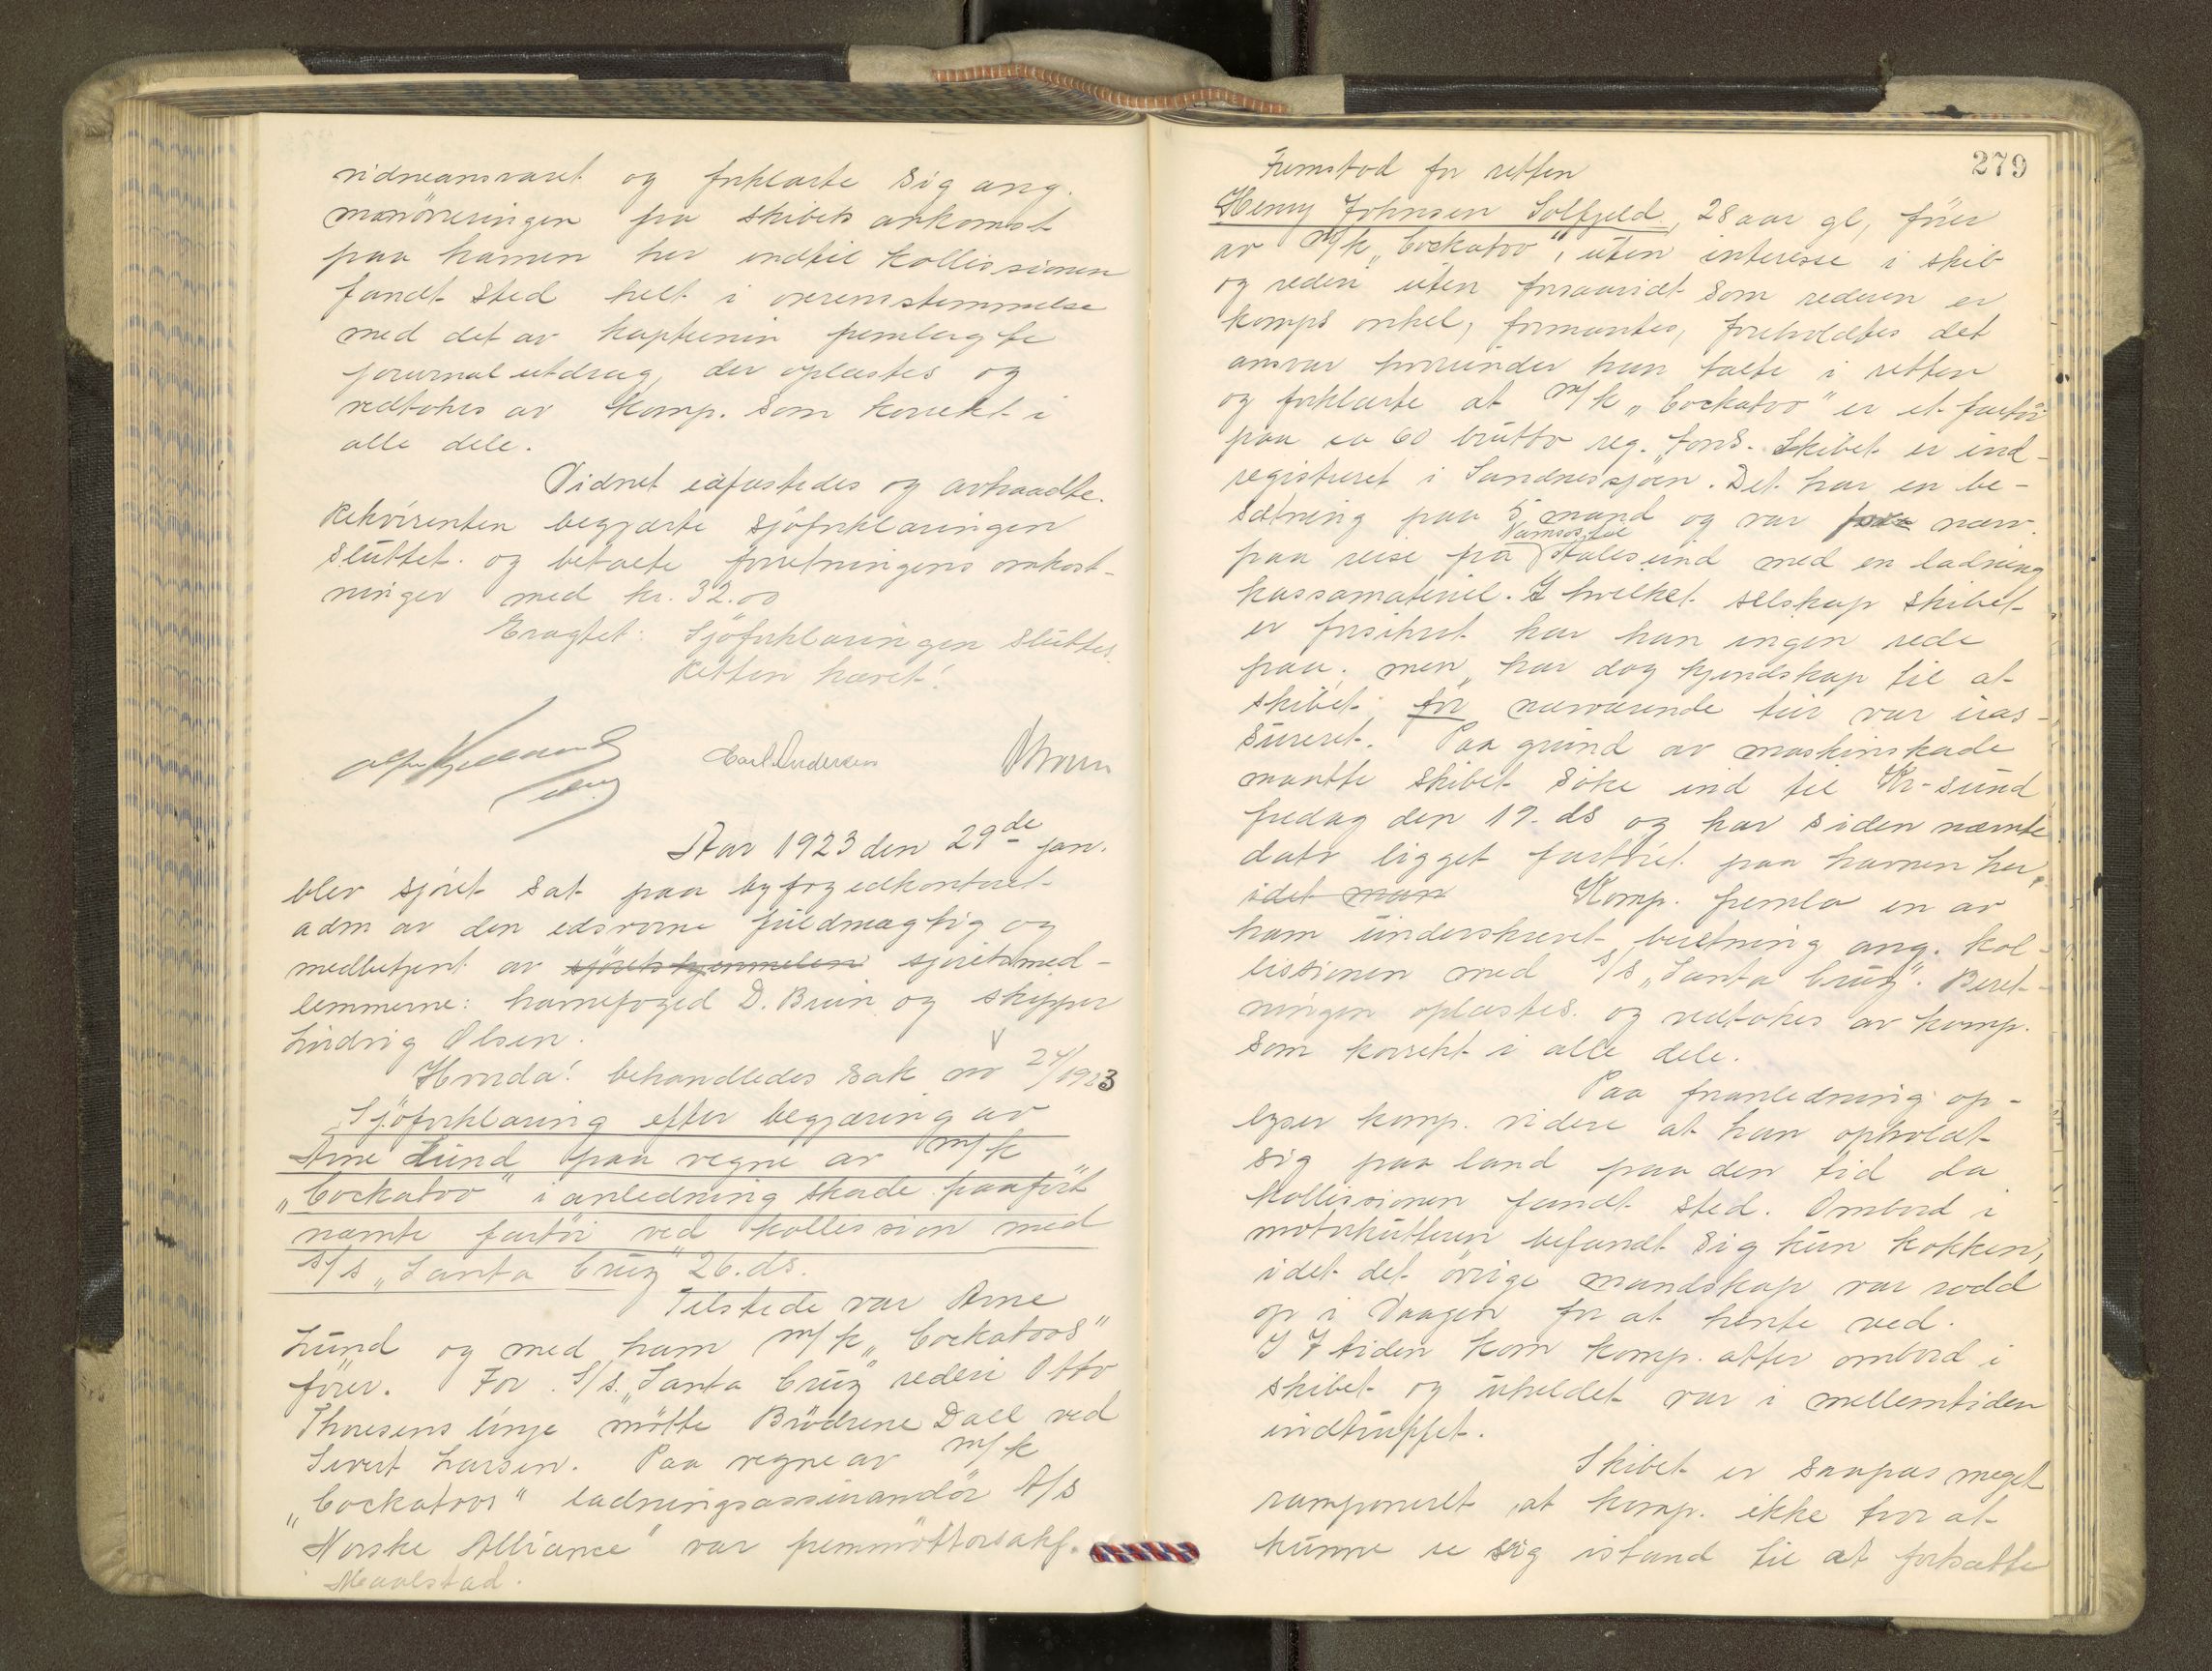 vidneansvaret og forklarte sig ang.
manövreringen fra skibets ankomst
paa havnen her indtil kollissionen
fandt sted helt i overensstemmelse
med det av kapteinen fremlagte
journalutdrag, der oplæstes og
vedtokes av komp. som korrekt i
alle dele.
Vidnet edfæstedes og avtraadte.
Rekvirenten begjærte sjöforklaringen
sluttet. og betalte forretningens omkost-
ninger med kr. 32.00
Eragtet: Sjöforklaringen sluttes.
Retten hævet!
Carl Andersen
DBruun
Aar 1923 den 29de jan.
blev sjöret sat paa byfogedkontoret
adm av den edsvorne fuldmægtig og
medbetjent av sjöretsmed-
lemmerne: havnefoged D. Bruun og skipper
Ludvig Olsen.
Hvorda! behandledes sak nr 24/1923
Sjöforklaring efter begjæring av
Arne Lund paa vegne av m/k
„Cockatoo" i anledning skade paafört
nævnte fartöi ved kollission med
s/s „Santa Cruz" 26. ds.
Tilstede var Arne
Lund og med ham m/k „Cockatoos"
förer. For S/s. „Santa Cruz" rederi Otto
Thoresens linje mötte Brödrene Dall ved
Sivert Larsen. Paa vegne av m/k
„Cockatoos" ladningsassurandör A/s
„Norske Alliance" var fremmött o.r.sakf.
Maalstad.
279
Fremstod for retten
Henry Johnsen Solfjeld, 28 aar gl, förer
av m/k „Cockatoo", uten interesse i skib
og rederi uten forsaavidt som rederen er
komps onkel, formantes, foreholdtes det
ansvar hvorunder han talte i retten
og forklarte at m/k „Cockatoo" er et fartöi
paa ca 60 brutto reg. tons. Skibet er ind-
registreret i Sandnessjöen. Det har en be-
sætning paa 5 mand og var nærv.
Namsos til
paa reise fra Aalesund med en ladning
kassamateriel. I hvilket selskap skibet
er forsikret har han ingen rede
paa; men har dog kjendskap til at
skibet for nærværende tur var uas-
sureret. Paa grund av maskinskade
maatte skibet söke ind til Kr-sund
fredag den 19. ds og har siden nævnte
dato ligget fortöiet paa havnen her,
idet man Komp. fremla en av
ham underskrevet beretning ang. kol-
lissionen med S/s „Santa Cruz". Beret-
ningen oplæstes og vedtokes av komp.
som korrekt i alle dele.
Paa foranledning op-
lyser komp. videre at han opholdt
sig paa land paa den tid da
kollissionen fandt sted. Ombord i
motorkutteren befandt sig kun kokken,
idet det övrige mandskap var rodd
op i Vaagen for at hente ved.
I 7 tiden kom komp. atter ombord i
skibet og uheldet var i mellemtiden
indtruffet.
Skibet er saapas meget
ramponeret at komp. ikke tror at
kunne se sig istand til at fortsætte